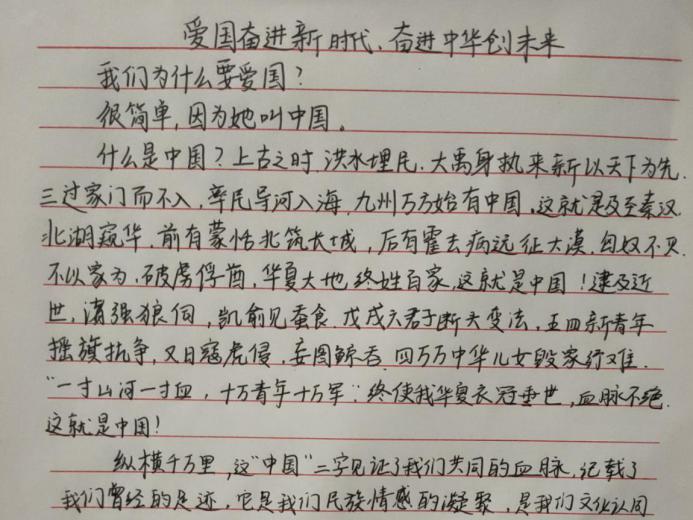 爱国奋进新时代、奋进中华创未来
我们为什么要爱国？
很简单，因为她叫中国。
什么是中国？上古之时，洪水埋民，大禹身执耒新以天下为先，
三过家门而不入，率民导河入海，九州万方始有中国，这就是及至秦汉，
北湖窥华，前有蒙恬北筑长城，后有霍去病远征大漠，匈奴不灭，
不以家为，破虏俘酋，华夏大地终姓百家，这就是中国！逮及近
世，诸强狼伺，凯俞见蚕食，戊戌六君子断头变法，五四新青年
摇旗抗争，又日寇虎侵，妄图鲸吞，四万万中华儿女毁家纾难，
“一寸山河一寸血，十万青年十万军”终使我华夏衣冠垂世，血脉不绝
这就是中国！
纵横千万里，这“中国”二字见证了我们共同的血脉，记载了
我们曾经的足迹，它是我们民族情感的凝聚，是我们文化认同